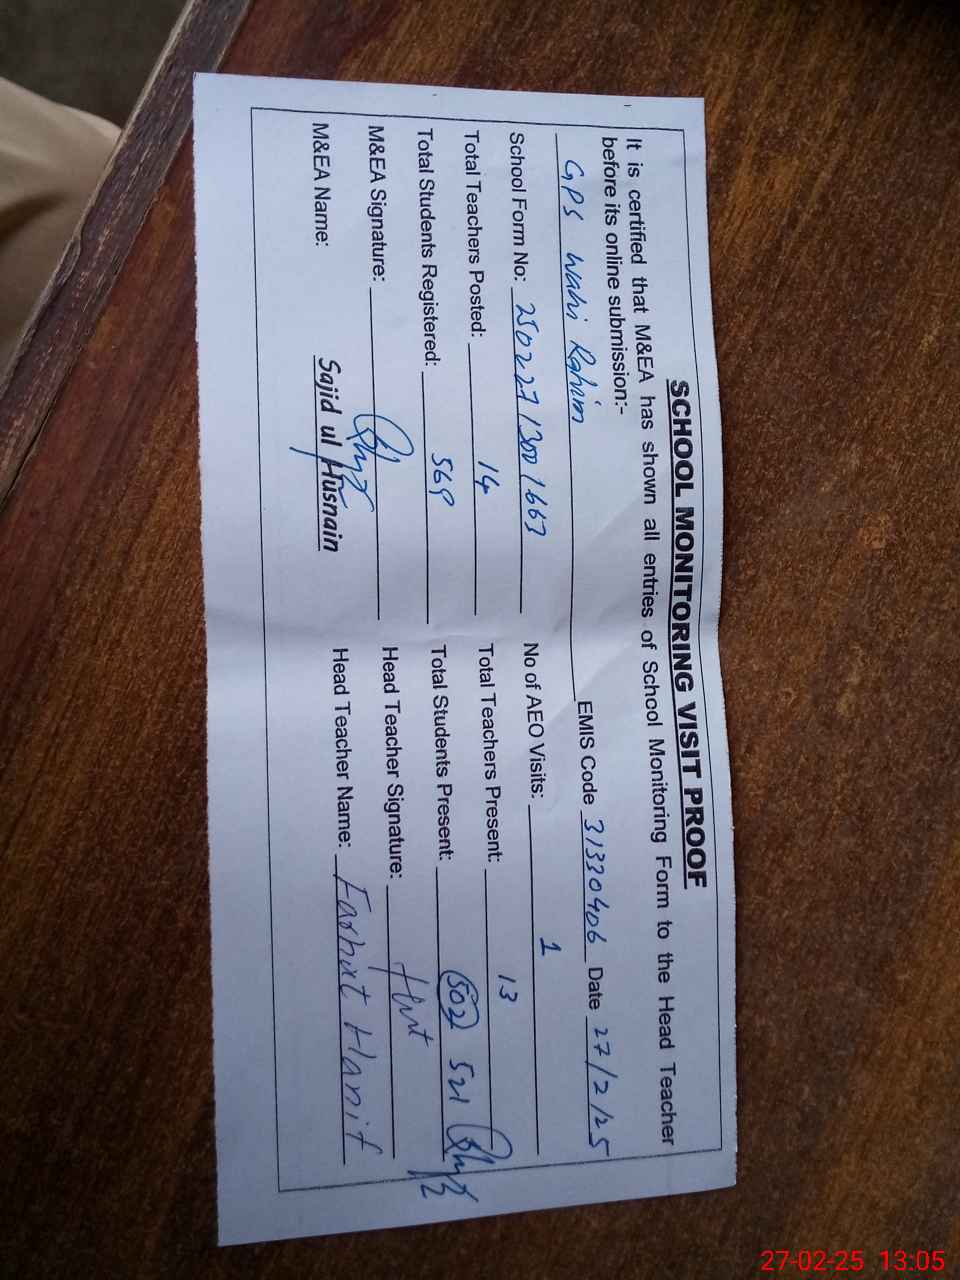 SCHOOL MONITORING VISIT PROOF
It is certified that M&EA has shown all entries of School Monitoring Form to the Head Teacher
before its online submission:-
GPS Wahi Rahim EMIS Code 31330406 Date 27/2/25
School Form No: 25022713001663 No of AEO Visits: 1
Total Teachers Posted: 14 Total Teachers Present: 13
Total Students Registered: 569 Total Students Present: 502 521
M&EA Signature: Head Teacher Signature:
M&EA Name: Sajid ul Husnain Head Teacher Name: Farhat Hanif
27-02-25 13:05